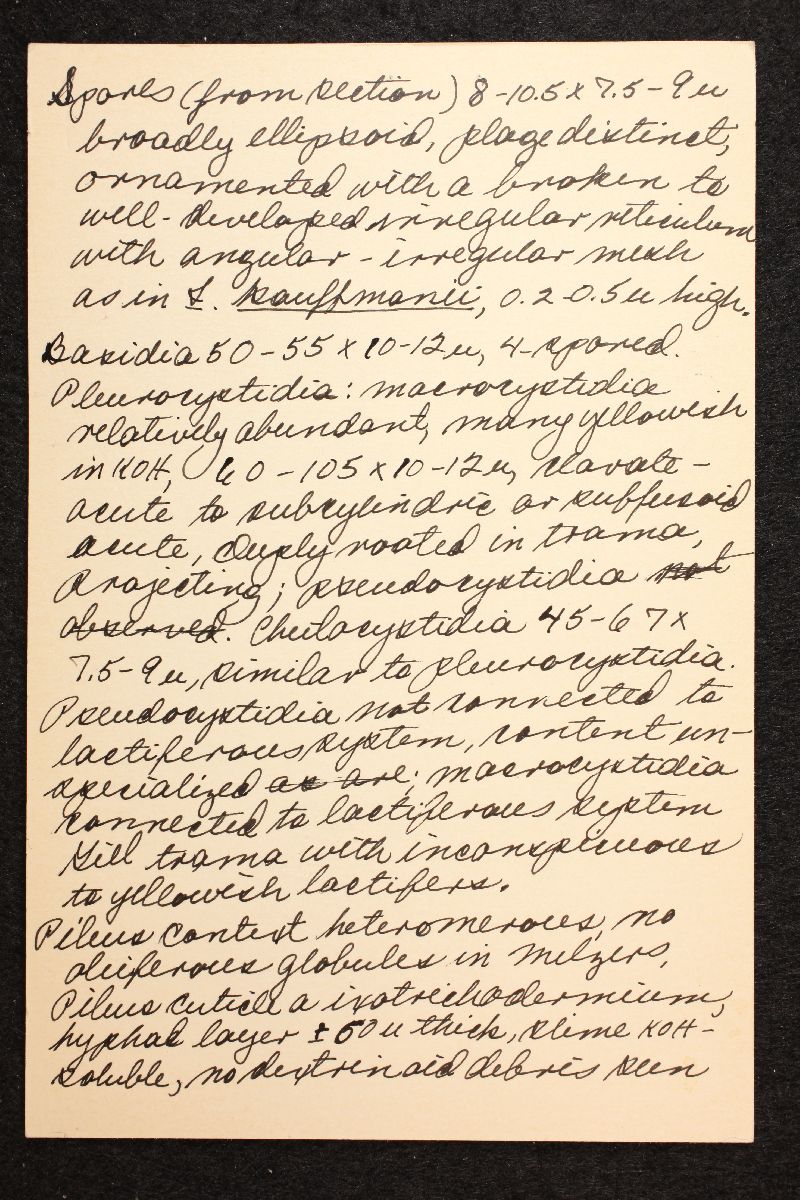 Spores (from section) 8-10.5 x 7.5-9 u
broadly ellipsoid, plage distinct,
ornamented with a broken to
well-developed irregular reticulum
with angular-irregular mesh
as in L. kauffmanii, 0.2-0.5 u high.
Basidia 50-55 x 10-12 u, 4-spored.
Pleurocystidia: macrocystidia
relatively abundant, many yellowish
in KOH, 60-105 x 10-12 u, clavate-
acute to subcylindric or subfusoid
acute, deeply rooted in trama,
projecting; pseudocystidia not
observed. Cheilocystidia 45-67 x
7.5-9 u, similar to pleurocystidia.
Pseudocystidia not connected to
lactiferous system, content un-
specialized as are; macrocystidia
connected to lactiferous system
Gill trama with inconspicuous
to yellowish lactifers.
Pileus context heteromerous, no
oleiferous globules in Melzers,
Pileus cuticle a ixotrichodermium,
hyphal layer ± 60 u thick, slime KOH-
soluble, no dextrinoid debris seen